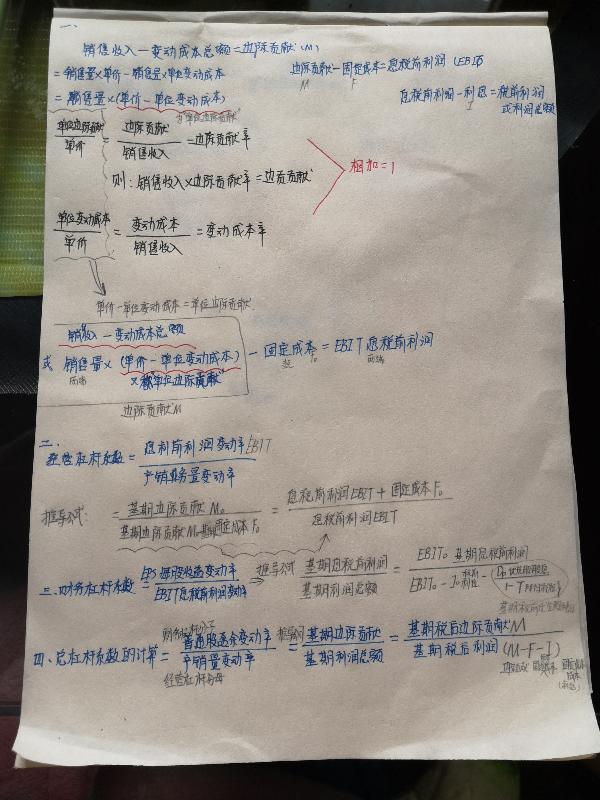 一、
销售收入-变动成本总额=边际贡献(M)
=销售量×单价-销售量×单位变动成本
边际贡献-固定成本=息税前利润(EBIT)
M F
=销售量×(单价-单位变动成本)
为单位边际贡献
息税前利润-利息=税前利润
I 或利润总额
单位边际贡献/单价=边际贡献/销售收入=边际贡献率
则:销售收入×边际贡献率=边贡贡献
相加=1
单位变动成本/单价=变动成本/销售收入=变动成本率
单价-单位变动成本=单位边际贡献
销售收入-变动成本总额
或 销售量×(单价-单位变动成本)-固定成本=EBIT息税前利润
×单位边际贡献
边际贡献M
二、
经营杠杆系数=息利前利润变动率EBIT/产销业务量变动率
推导公式:=基期边际贡献M₀/基期边际贡献M₀-基期固定成本F₀=息税前利润EBIT+固定成本F₀/息税前利润EBIT
三、财务杠杆系数=EPS每股收益变动率/EBIT息税前利润变动率⇒推导公式 基期息税前利润/基期利润总额=EBIT₀ 基期息税前利润/EBIT₀-I₀-
1-T
四、总杠杆系数的计算=普通股盈余变动率/产销量变动率=基期边际贡献/基期利润总额=基期税后边际贡献M/基期税后利润(M-F-I)
推导
固定成本